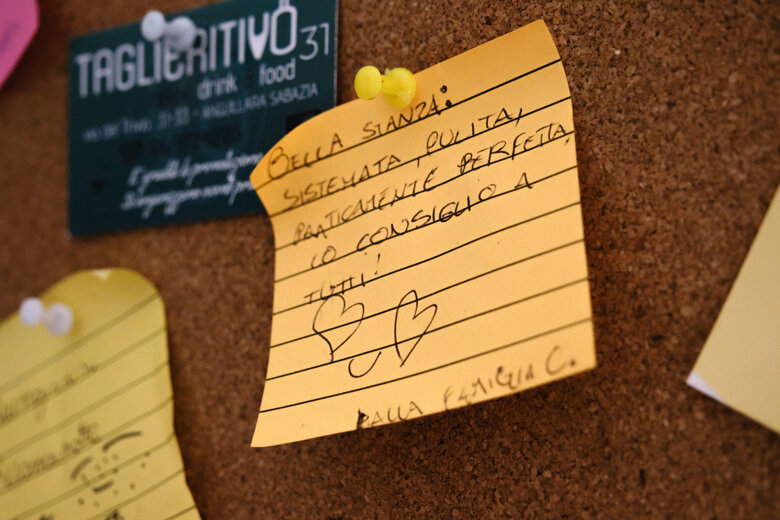 TAGLIERITIVO 31
drink & food
via del Trivio, 31-33 - ANGUILLARA SABAZIA
BELLA STANZA:
SISTEMATA, PULITA,
PRATICAMENTE PERFETTA.
LO CONSIGLIO A
TUTTI!
DALLA FAMIGLIA C.